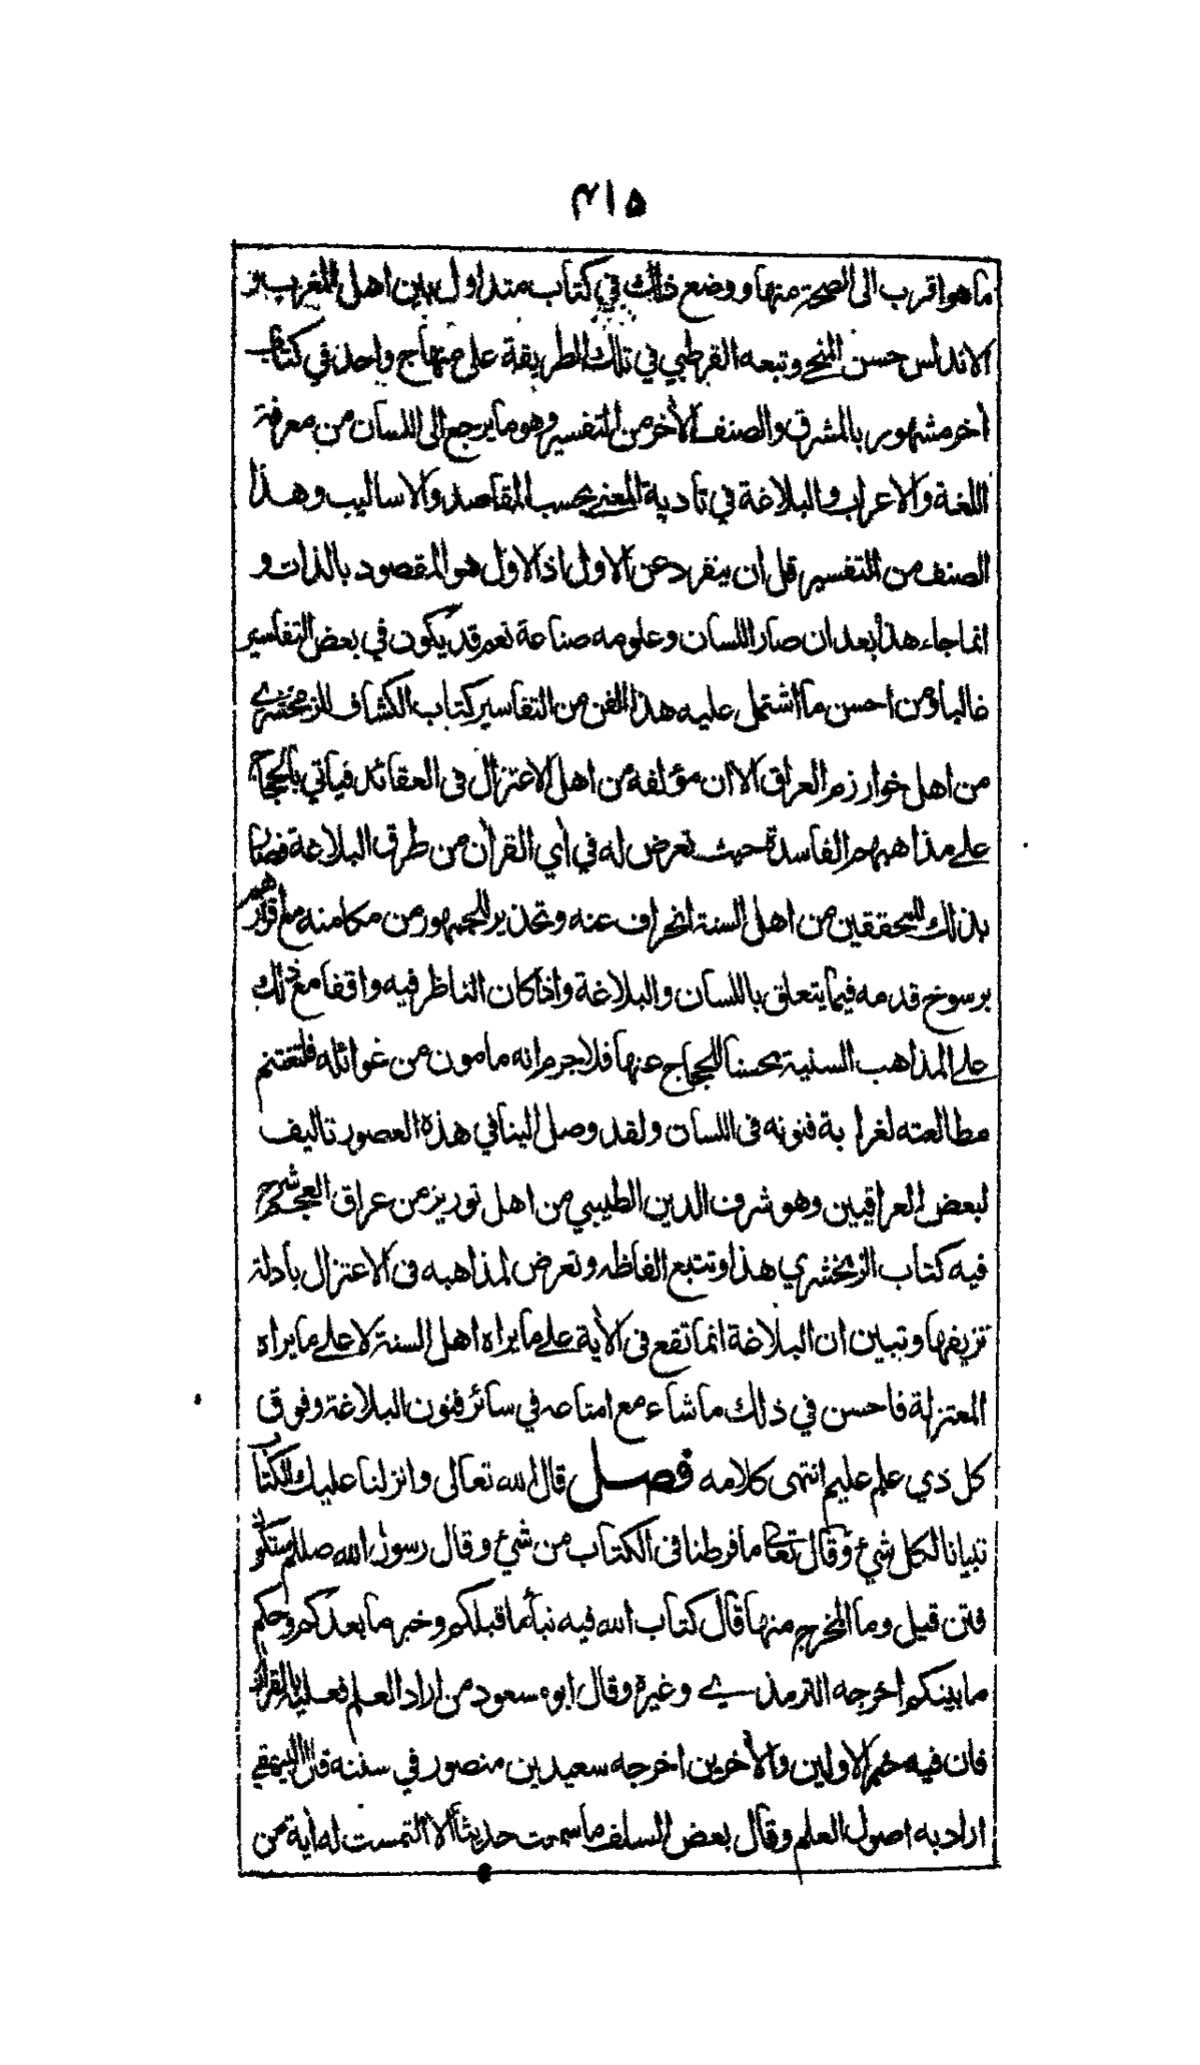 ۴۱۵
ما هو اقرب الى الصحة منها ووضع ذلك في كتاب متداول بين اهل المغرب و
الاندلس حسن المنحى وتبعه القرطبي في تلك الطريقة على منهاج واحد في كتاب
اخر مشهور بالمشرق والصنف الأخر من التفسير وهو ما يرجع الى اللسان من معرفة
اللغة والاعراب والبلاغة في تادية المعنى بحسب المقاصد والاساليب وهذا
الصنف من التفسير قل ان ينفرد عن الاول اذ الاول هو المقصود بالذات و
انما جاء هذا بعد ان صار اللسان وعلومه صناعة نعم قد يكون في بعض التفاسير
غالبا ومن احسن ما اشتمل عليه هذا الفن من التفاسير كتاب الكشاف للزمخشري
من اهل خوارزم العراق الا ان مؤلفه من اهل الاعتزال فى العقائد فياتي بالحجاج
على مذاهبهم الفاسدة حيث تعرض له في أي القرأن من طرق البلاغة فصار
بذلك للمحققين من اهل السنة انحراف عنه وتحذير للجمهور من مكامنه مع اقرارهم
برسوخ قدمه فيما يتعلق باللسان والبلاغة واذا كان الناظر فيه واقفا مع ذلك
على المذاهب السنية محسنا للحجاج عنها فلا جرم انه مامون من غوائله فلتغتنم
مطالعته لغرابة فنونه فى اللسان ولقد وصل الينا في هذه العصور تاليف
لبعض العراقيين وهو شرف الدين الطيبي من اهل توريز من عراق العجم شرح
فيه كتاب الزمخشري هذا وتتبع الفاظه وتعرض لمذاهبه فى الاعتزال بادلة
تزيفها وتبين ان البلاغة انما تقع فى الأية على ما يراه اهل السنة لا على ما يراه
المعتزلة فاحسن في ذلك ما شاء مع امتاعه في سائر فنون البلاغة وفوق
كل ذي علم عليم انتهى كلامه فصل قال الله تعالى وانزلنا عليك الكتاب
تبيانا لكل شيء وقال تعالى ما فرطنا فى الكتاب من شيء وقال رسول الله صللم ستكون
فتن قيل وما المخرج منها قال كتاب الله فيه نبأ ما قبلكم وخبر ما بعدكم وحكم
ما بينكم اخرجه الترمذي وغيره وقال ابو مسعود من اراد العلم فعليه بالقرأن
فان فيه خبر الاولين والأخرين اخرجه سعيد بن منصور في سننه قال البيهقي
اراد به اصول العلم وقال بعض السلف ما سمعت حديثا الا التمست له أية من